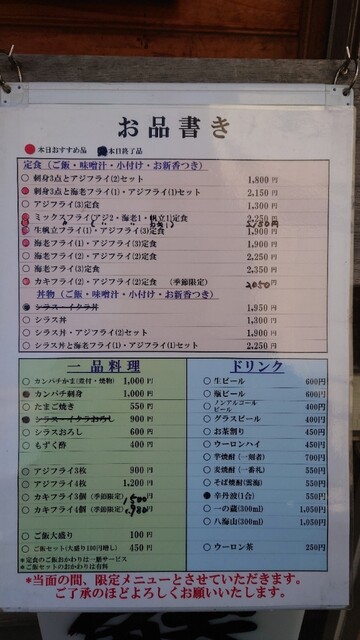 お品書き
本日おすすめ品 本日終了品
定食（ご飯・味噌汁・小付け・お新香つき）
○ 刺身3点とアジフライ(2)セット 1,800円
刺身3点と海老フライ(1)・アジフライ(1)セット 2,150円
○ アジフライ(3)定食 1,300円
ミックスフライ(アジ2・海老1・帆立1)定食 2,250円
2,150円
生帆立フライ(1)・アジフライ(3)定食 1,900円
海老フライ(1)・アジフライ(3)定食 1,900円
○ 海老フライ(2)・アジフライ(2)定食 2,250円
○ 海老フライ(3)定食 2,350円
カキフライ(2)・アジフライ(2)定食 （季節限定） 2050円
丼物（ご飯・味噌汁・小付け・お新香つき）
シラス・イクラ丼 1,950円
○ シラス丼 1,300円
○ シラス丼・アジフライ(2)セット 1,900円
○ シラス丼と海老フライ(1)・アジフライ(1)セット 2,250円
一品料理
○ カンパチかま(煮付・焼物) 1,000円
カンパチ刺身 1,000円
○ たまご焼き 550円
シラス・イクラおろし 900円
○ シラスおろし 600円
○ もずく酢 400円
アジフライ3枚 900円
アジフライ4枚 1,200円
○ カキフライ3個 (季節限定) 1,500円
○ カキフライ4個 (季節限定) 1,980円
○ ご飯大盛り 100円
○ ご飯セット(大盛り100円増し) 450円
*定食のご飯おかわりは一膳サービス
*ご飯セットのおかわりは有料
ドリンク
○ 生ビール 600円
○ 瓶ビール 600円
○ ノンアルコールビール 400円
○ グラスビール 400円
○ お茶割り 450円
○ ウーロンハイ 450円
○ 芋焼酎(一刻者) 700円
○ 麦焼酎(一番札) 550円
○ そば焼酎(雲海) 550円
辛丹波(1合) 550円
○ 一の蔵(300ml) 1,050円
○ 八海山(300ml) 1,050円
○ ウーロン茶 250円
*当面の間、限定メニューとさせていただきます。
ご了承のほどよろしくお願いいたします。